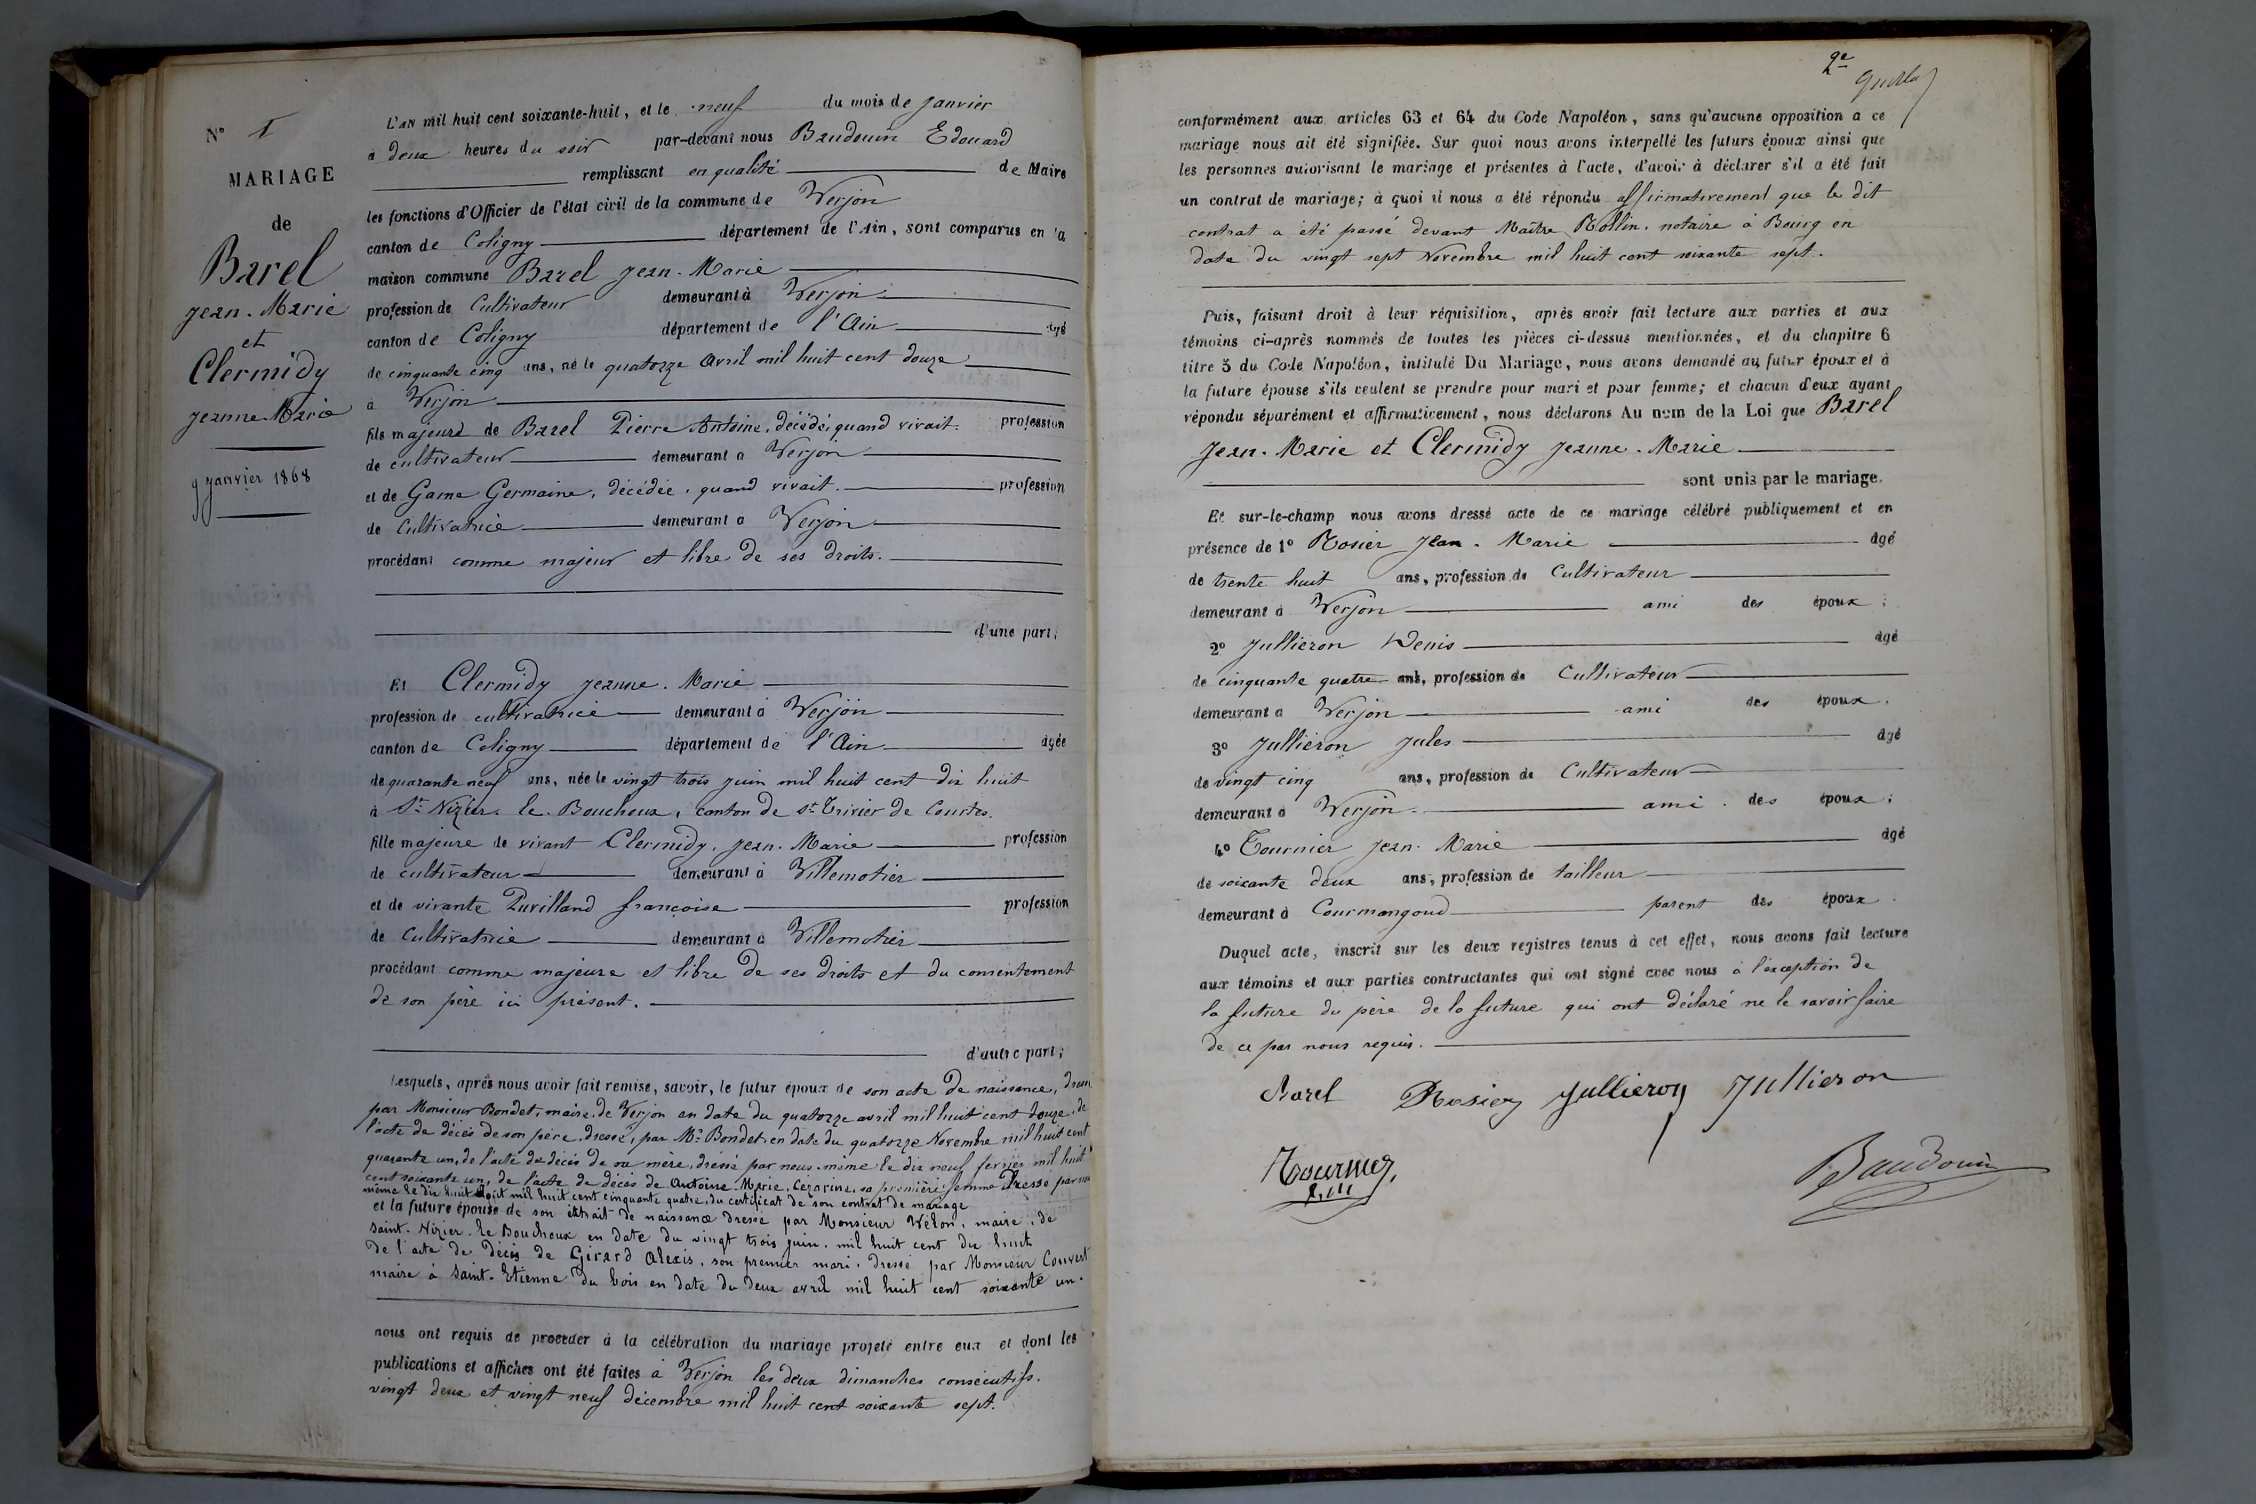 N° 1
MARIAGE
de
Barel
Jean-Marie
et
Clermidy
Jeanne-Marie
9 janvier 1868
L'AN mil huit cent soixante-huit, et le neuf du mois de janvier
à deux heures du soir par-devant nous Baudouin Edouard
remplissant en qualité de Maire
les fonctions d'Officier de l'état civil de la commune de Verjon
canton de Coligny département de l'Ain, sont comparus en la
maison commune Barel Jean-Marie
profession de Cultivateur demeurant à Verjon
canton de Coligny département de l'Ain âgé
de cinquante cinq ans, né le quatorze avril mil huit cent douze
à Verjon
fils majeur de Barel Pierre Antoine, décédé, quand vivait profession
de cultivateur demeurant à Verjon
et de Game Germaine, décédée, quand vivait profession
de Cultivatrice demeurant à Verjon
procédant comme majeur et libre de ses droits.
d'une part;
Et Clermidy Jeanne-Marie
profession de cultivatrice demeurant à Verjon
canton de Coligny département de l'Ain âgée
de quarante neuf ans, née le vingt trois juin mil huit cent dix huit
à St Nizier-le-Bouchoux, canton de St Trivier de Courtes.
fille majeure de vivant Clermidy, Jean-Marie profession
de cultivateur demeurant à Villemotier
et de vivante Puvilland françoise profession
de Cultivatrice demeurant à Villemotier
procédant comme majeure et libre de ses droits et du consentement
de son père ici présent.
d'autre part;
Lesquels, après nous avoir fait remise, savoir, le futur époux de son acte de naissance, dressé
par Monsieur Bondet, maire de Verjon en date du quatorze avril mil huit cent douze, de
l'acte de décès de son père, dressé, par Mr Bondet en date du quatorze Novembre mil huit cent
quarante un, de l'acte de décès de sa mère, dressé par nous-même le dix neuf fevrier mil huit
cent soixante un, de l'acte de décès de Antoine-Marie, Cezarine, sa première femme dressé par nous
même le dix huit Août mil huit cent cinquante quatre, du certificat de son contrat de mariage
et la future épouse de son extrait de naissance dressé par Monsieur Velon, maire, de
saint-Nizier-le Bouchoux en date du vingt trois juin mil huit cent dix huit
de l'acte de décès de Girard Alexis, son premier mari, dressé par Monsieur Couvert
maire à Saint-Etienne du bois en date du deux avril mil huit cent soixante un.
nous ont requis de procéder à la célébration du mariage projeté entre eux et dont les
publications et affiches ont été faites à Verjon les deux dimanches consécutifs.
vingt deux et vingt neuf décembre mil huit cent soixante sept.
2e
conformément aux articles 63 et 64 du Code Napoléon, sans qu'aucune opposition à ce
mariage nous ait été signifiée. Sur quoi nous avons interpellé les futurs époux ainsi que
les personnes autorisant le mariage et présentes à l'acte, d'avoir à déclarer s'il a été fait
un contrat de mariage; à quoi il nous a été répondu affirmativement que le dit
contrat a été passé devant Maître Rollin, notaire à Bourg en
date du vingt sept Novembre mil huit cent soixante sept.
Puis, faisant droit à leur réquisition, après avoir fait lecture aux parties et aux
témoins ci-après nommés de toutes les pièces ci-dessus mentionnées, et du chapitre 6
titre 5 du Code Napoléon, intitulé Du Mariage, nous avons demandé au futur époux et à
la future épouse s'ils veulent se prendre pour mari et pour femme; et chacun d'eux ayant
répondu séparément et affirmativement, nous déclarons Au nom de la Loi que Barel
Jean-Marie et Clermidy Jeanne-Marie
sont unis par le mariage.
Et sur-le-champ nous avons dressé acte de ce mariage célébré publiquement et en
présence de 1° Rosier Jean-Marie âgé
de trente huit ans, profession de Cultivateur
demeurant à Verjon ami des époux;
2° Jullieron Denis âgé
de cinquante quatre ans, profession de Cultivateur
demeurant à Verjon ami des époux.
3° Jullieron Jules âgé
de vingt cinq ans, profession de Cultivateur
demeurant à Verjon ami des époux;
4° Tournier Jean-Marie âgé
de soixante deux ans, profession de tailleur
demeurant à Courmangoud parent des époux.
Duquel acte, inscrit sur les deux registres tenus à cet effet, nous avons fait lecture
aux témoins et aux parties contractantes qui ont signé avec nous à l'exception de
la future du père de la future qui ont déclaré ne le savoir faire
de ce par nous requis.
Barel Rosier Jullieron Jullieron
Tournier
Baudouin